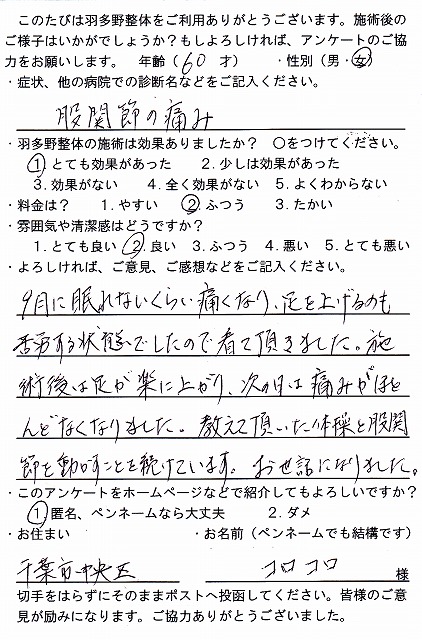 このたびは羽多野整体をご利用ありがとうございます。施術後の
ご様子はいかがでしょうか？もしよろしければ、アンケートのご協
力をお願いします。　年齢（60 才）　・性別（男・女）
・症状、他の病院での診断名などをご記入ください。
股関節の痛み
・羽多野整体の施術は効果ありましたか？　〇をつけてください。
1 とても効果があった　2. 少しは効果があった
3. 効果がない　4. 全く効果がない　5. よくわからない
・料金は？　1. やすい　2. ふつう　3. たかい
・雰囲気や清潔感はどうですか？
1. とても良い　2. 良い　3. ふつう　4. 悪い　5. とても悪い
・よろしければ、ご意見、ご感想などをご記入ください。
9月に眠れないくらい痛くなり、足を上げるのも
苦労する状態でしたので看て頂きました。施
術後は足が楽に上がり、次の日は痛みがほと
んどなくなりました。教えて頂いた体操と股関
節を動かすことを続けています。お世話になりました。
・このアンケートをホームページなどで紹介してもよろしいですか？
1 匿名、ペンネームなら大丈夫　2. ダメ
・お住まい　・お名前（ペンネームでも結構です）
千葉市中央区　コロコロ　様
切手をはらずにそのままポストへ投函してください。皆様のご意
見が励みになります。ご協力ありがとうございました。